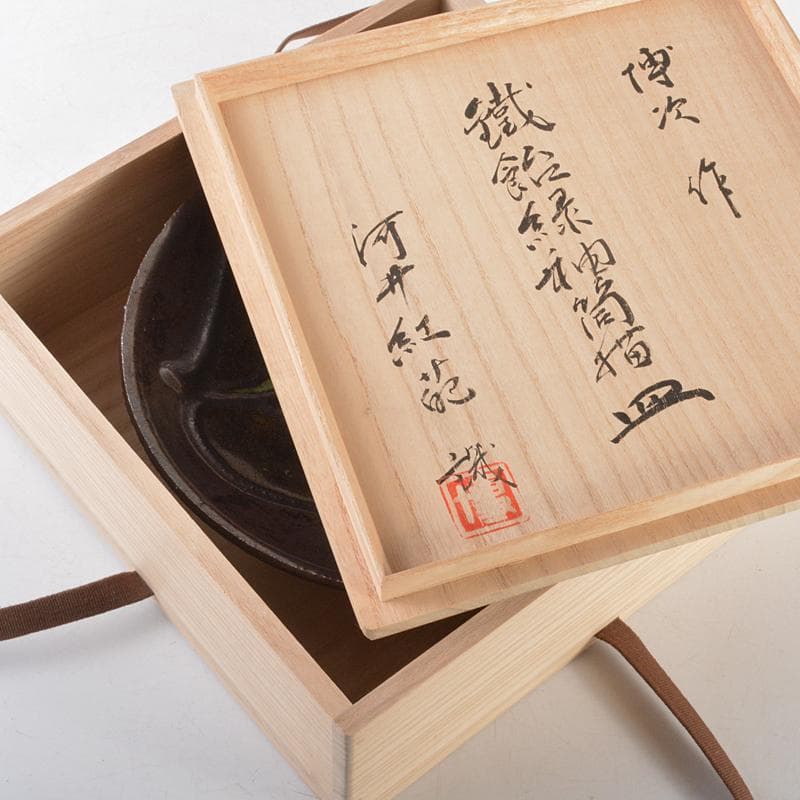 博次 作
鐵飴緑釉筒描皿
河井紅葩 識